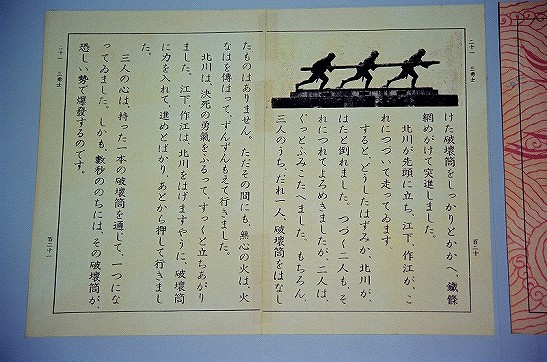 二十一 三勇士
けた破壞筒をしつかりとかかへ、鐵條
網めがけて突進しました。
北川が先頭に立ち、江下、作江が、こ
れにつづいて走つてゐます。
すると、どうしたはずみか、北川が、
はたと倒れました。つづく二人も、そ
れにつれてよろめきましたが、二人は、
ぐつとふみこたへました。もちろん、
三人のうち、だれ一人、破壞筒をはなし
百二十
たものはありません。ただその間にも、無心の火は、火
なはを傳はつて、ずんずんもえて行きました。
北川は、決死の勇氣をふるつて、すつくと立ちあがり
ました。江下、作江は、北川をはげますやうに、破壞筒
に力を入れて、進めとばかり、あとから押して行きまし
た。
三人の心は、持つた一本の破壞筒を通じて、一つにな
つてゐました。しかも、數秒ののちには、その破壞筒が、
恐しい勢で爆發するのです。
二十一 三勇士
百二十一